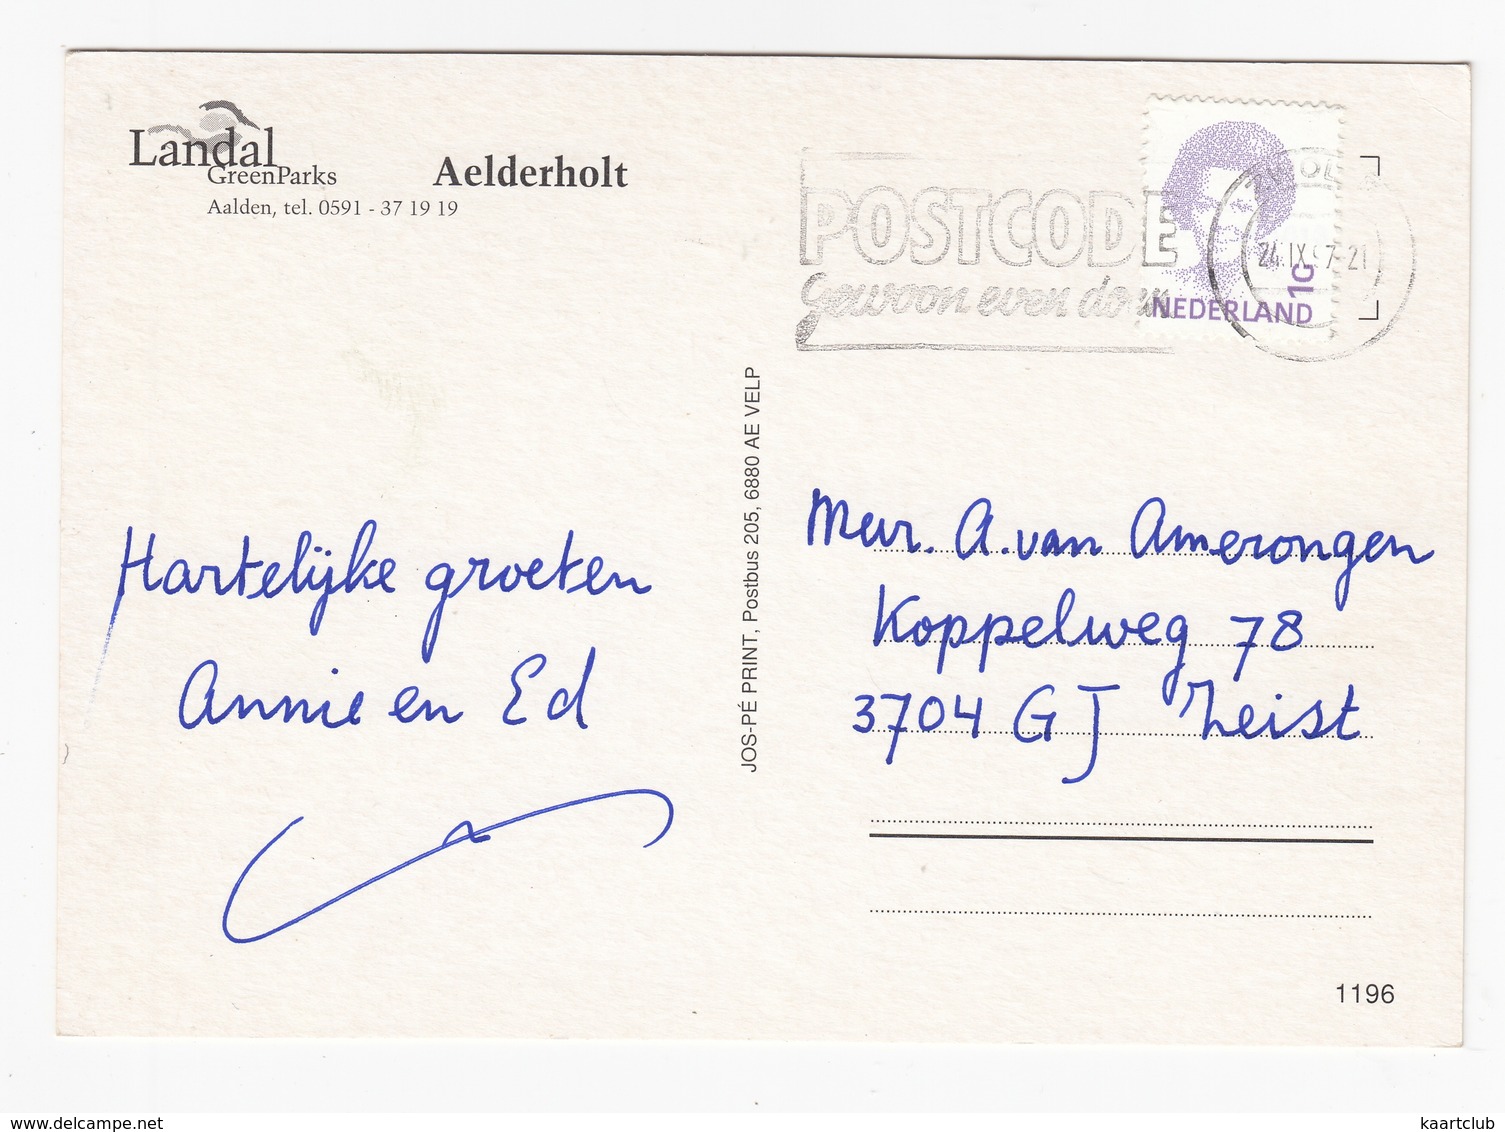 Landal
GreenParks
Aelderholt
Aalden, tel. 0591 - 37 19 19
POSTCODE
Gewoon even doen
24.IX.97-21
1G
NEDERLAND
JOS-PÉ PRINT, Postbus 205, 6880 AE VELP
Hartelijke groeten
Annie en Ed
Mevr. A. van Amerongen
Koppelweg 78
3704 GJ Zeist
1196
kaartclub
www.delcampe.net